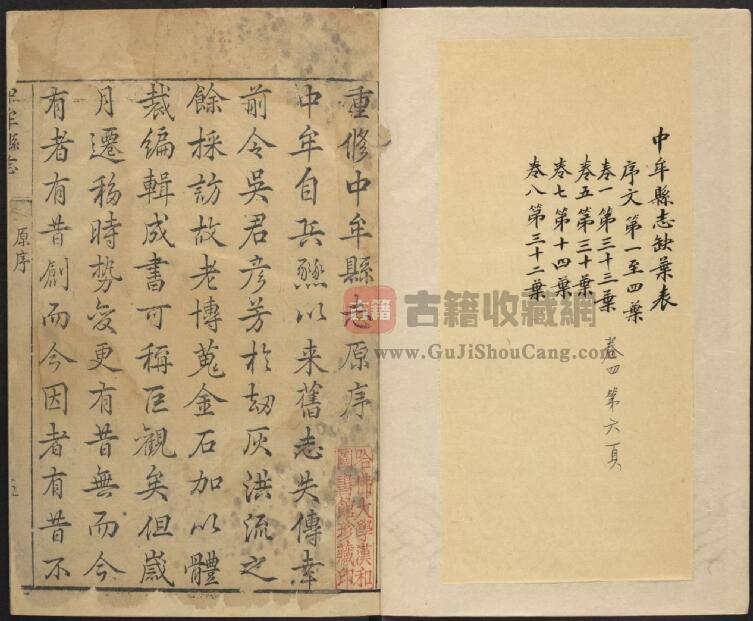 中牟縣志缺葉表
序文第一至四葉
卷一第三十三葉
卷五第三十葉
卷七第十四葉
卷八第三十二葉
卷四第六頁
重修中牟縣志原序
中牟自兵燹以来舊志失傳幸
前令吳君彦芳於刼灰洪流之
餘採訪故老博蒐金石加以體
裁編輯成書可称巨觀矣但歳
月遷移時势变更有昔無而今
有者有昔創而今因者有昔不
牟縣志
原序
五
哈佛大學漢和
圖書館珍藏印
古籍
古籍收藏網
www.GuJiShouCang.com